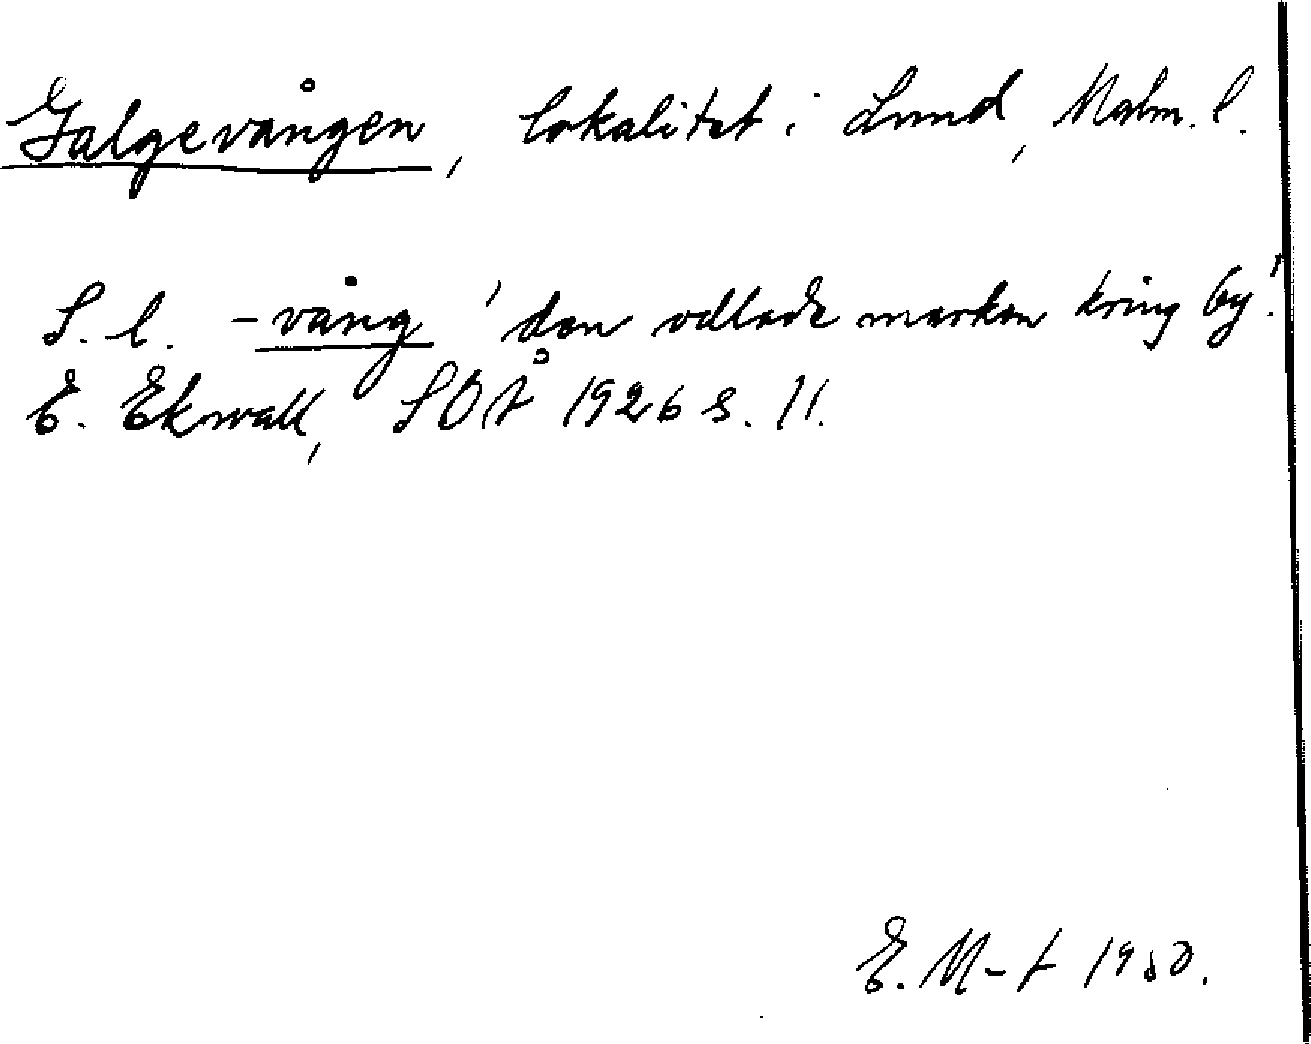 Galgevången, lokalitet i Lund, Malm. l.
S. l. -vång 'den odlade marken kring by'.
E. Ekwall, SOÅ 1926 s. 11.
E. M-t 1950.